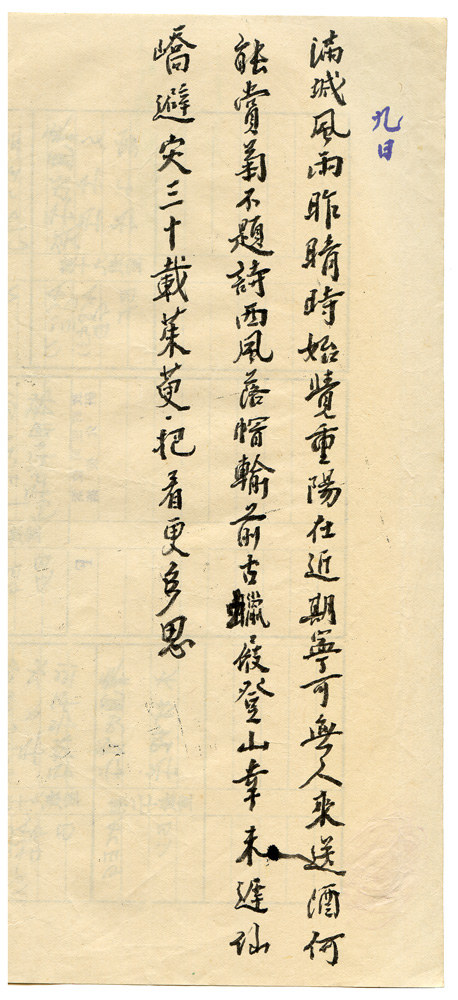 九日
滿城風雨昨晴時始覺重陽在近期寧可無人來送酒何
能賞菊不題詩西風落帽輸前古蠟屐登山幸未遲仙
嶠避灾三十載茱萸把看更多思